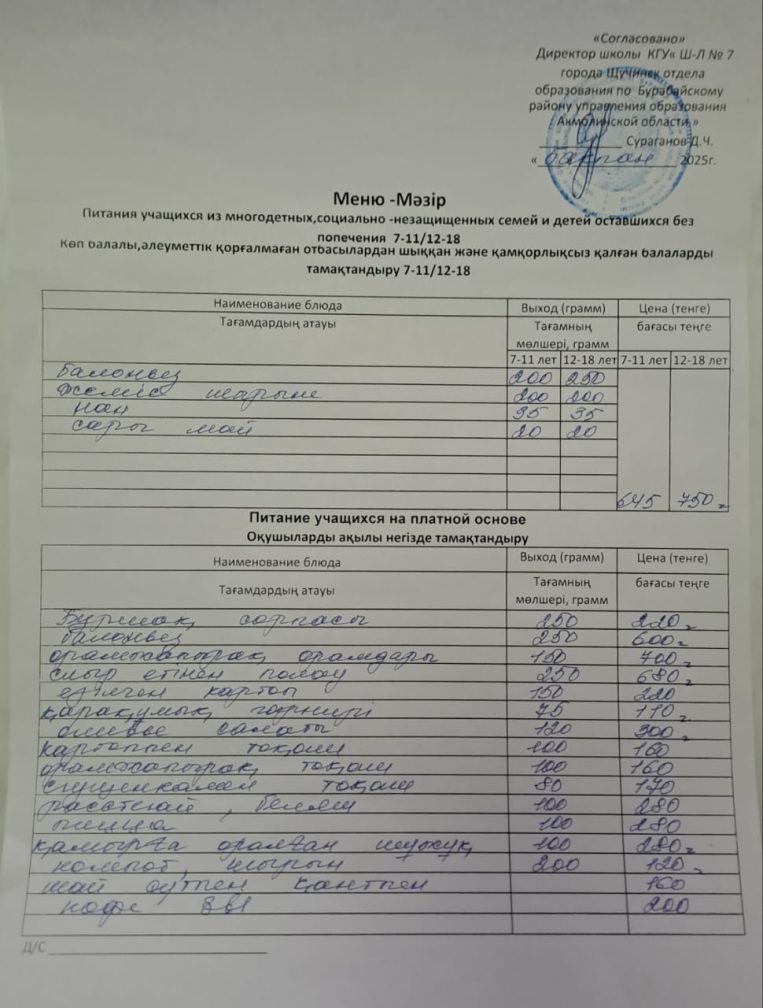 «Согласовано»
Директор школы КГУ« Ш-Л № 7
города Щучинск отдела
образования по Бурабайскому
району управления образования
Акмолинской области »
Сураганов Д.Ч.
« 2025г.
Меню -Мәзір
Питания учащихся из многодетных,социально -незащищенных семей и детей оставшихся без
попечения 7-11/12-18
Көп балалы,әлеуметтік қорғалмаған отбасылардан шыққан және қамқорлықсыз қалған балаларды
тамақтандыру 7-11/12-18
Наименование блюда Выход (грамм) Цена (тенге)
Тағамдардың атауы Тағамның бағасы теңге
мөлшері, грамм
7-11 лет 12-18 лет 7-11 лет 12-18 лет
балоньез 200 250
жеміс шарыне 200 200
нан 35 35
сары май 20 20
645 750 т
Питание учащихся на платной основе
Оқушыларды ақылы негізде тамақтандыру
Наименование блюда Выход (грамм) Цена (тенге)
Тағамдардың атауы Тағамның бағасы теңге
мөлшері, грамм
Бұршақ сорпасы 250 220 т
балоньез 250 600 т
орамжапырақ орамдары 150 700 т
сиыр етінен полау 250 680 т
езілген картоп 150 220
қарақұмық гарнирі 75 110 т
оливье салаты 120 300 т
картоппен тоқаш 100 160
орамжапырақ тоқаш 100 160
сгущенкамен тоқаш 80 170
расстегай , беляш 100 280
пицца 100 280
қамырға оралған шұжұқ 100 280 т
компот, шырын 200 120 т
шай сүтпен қантпен 160
кофе 3в1 200
Д/С